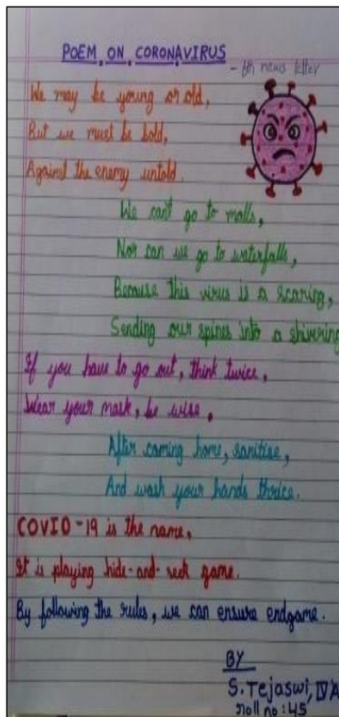 POEM ON CORONAVIRUS
- for news letter
We may be young or old,
But we must be bold,
Against the enemy untold.
We can't go to malls,
Nor can we go to waterfalls,
Because this virus is a scaring,
Sending our spines into a shivering
If you have to go out, think twice,
Wear your mask, be wise,
After coming home, sanitise,
And wash your hands thrice.
COVID-19 is the name,
It is playing hide-and-seek game.
By following the rules, we can ensure endgame.
BY
S. Tejaswi, IV A
roll no: 45